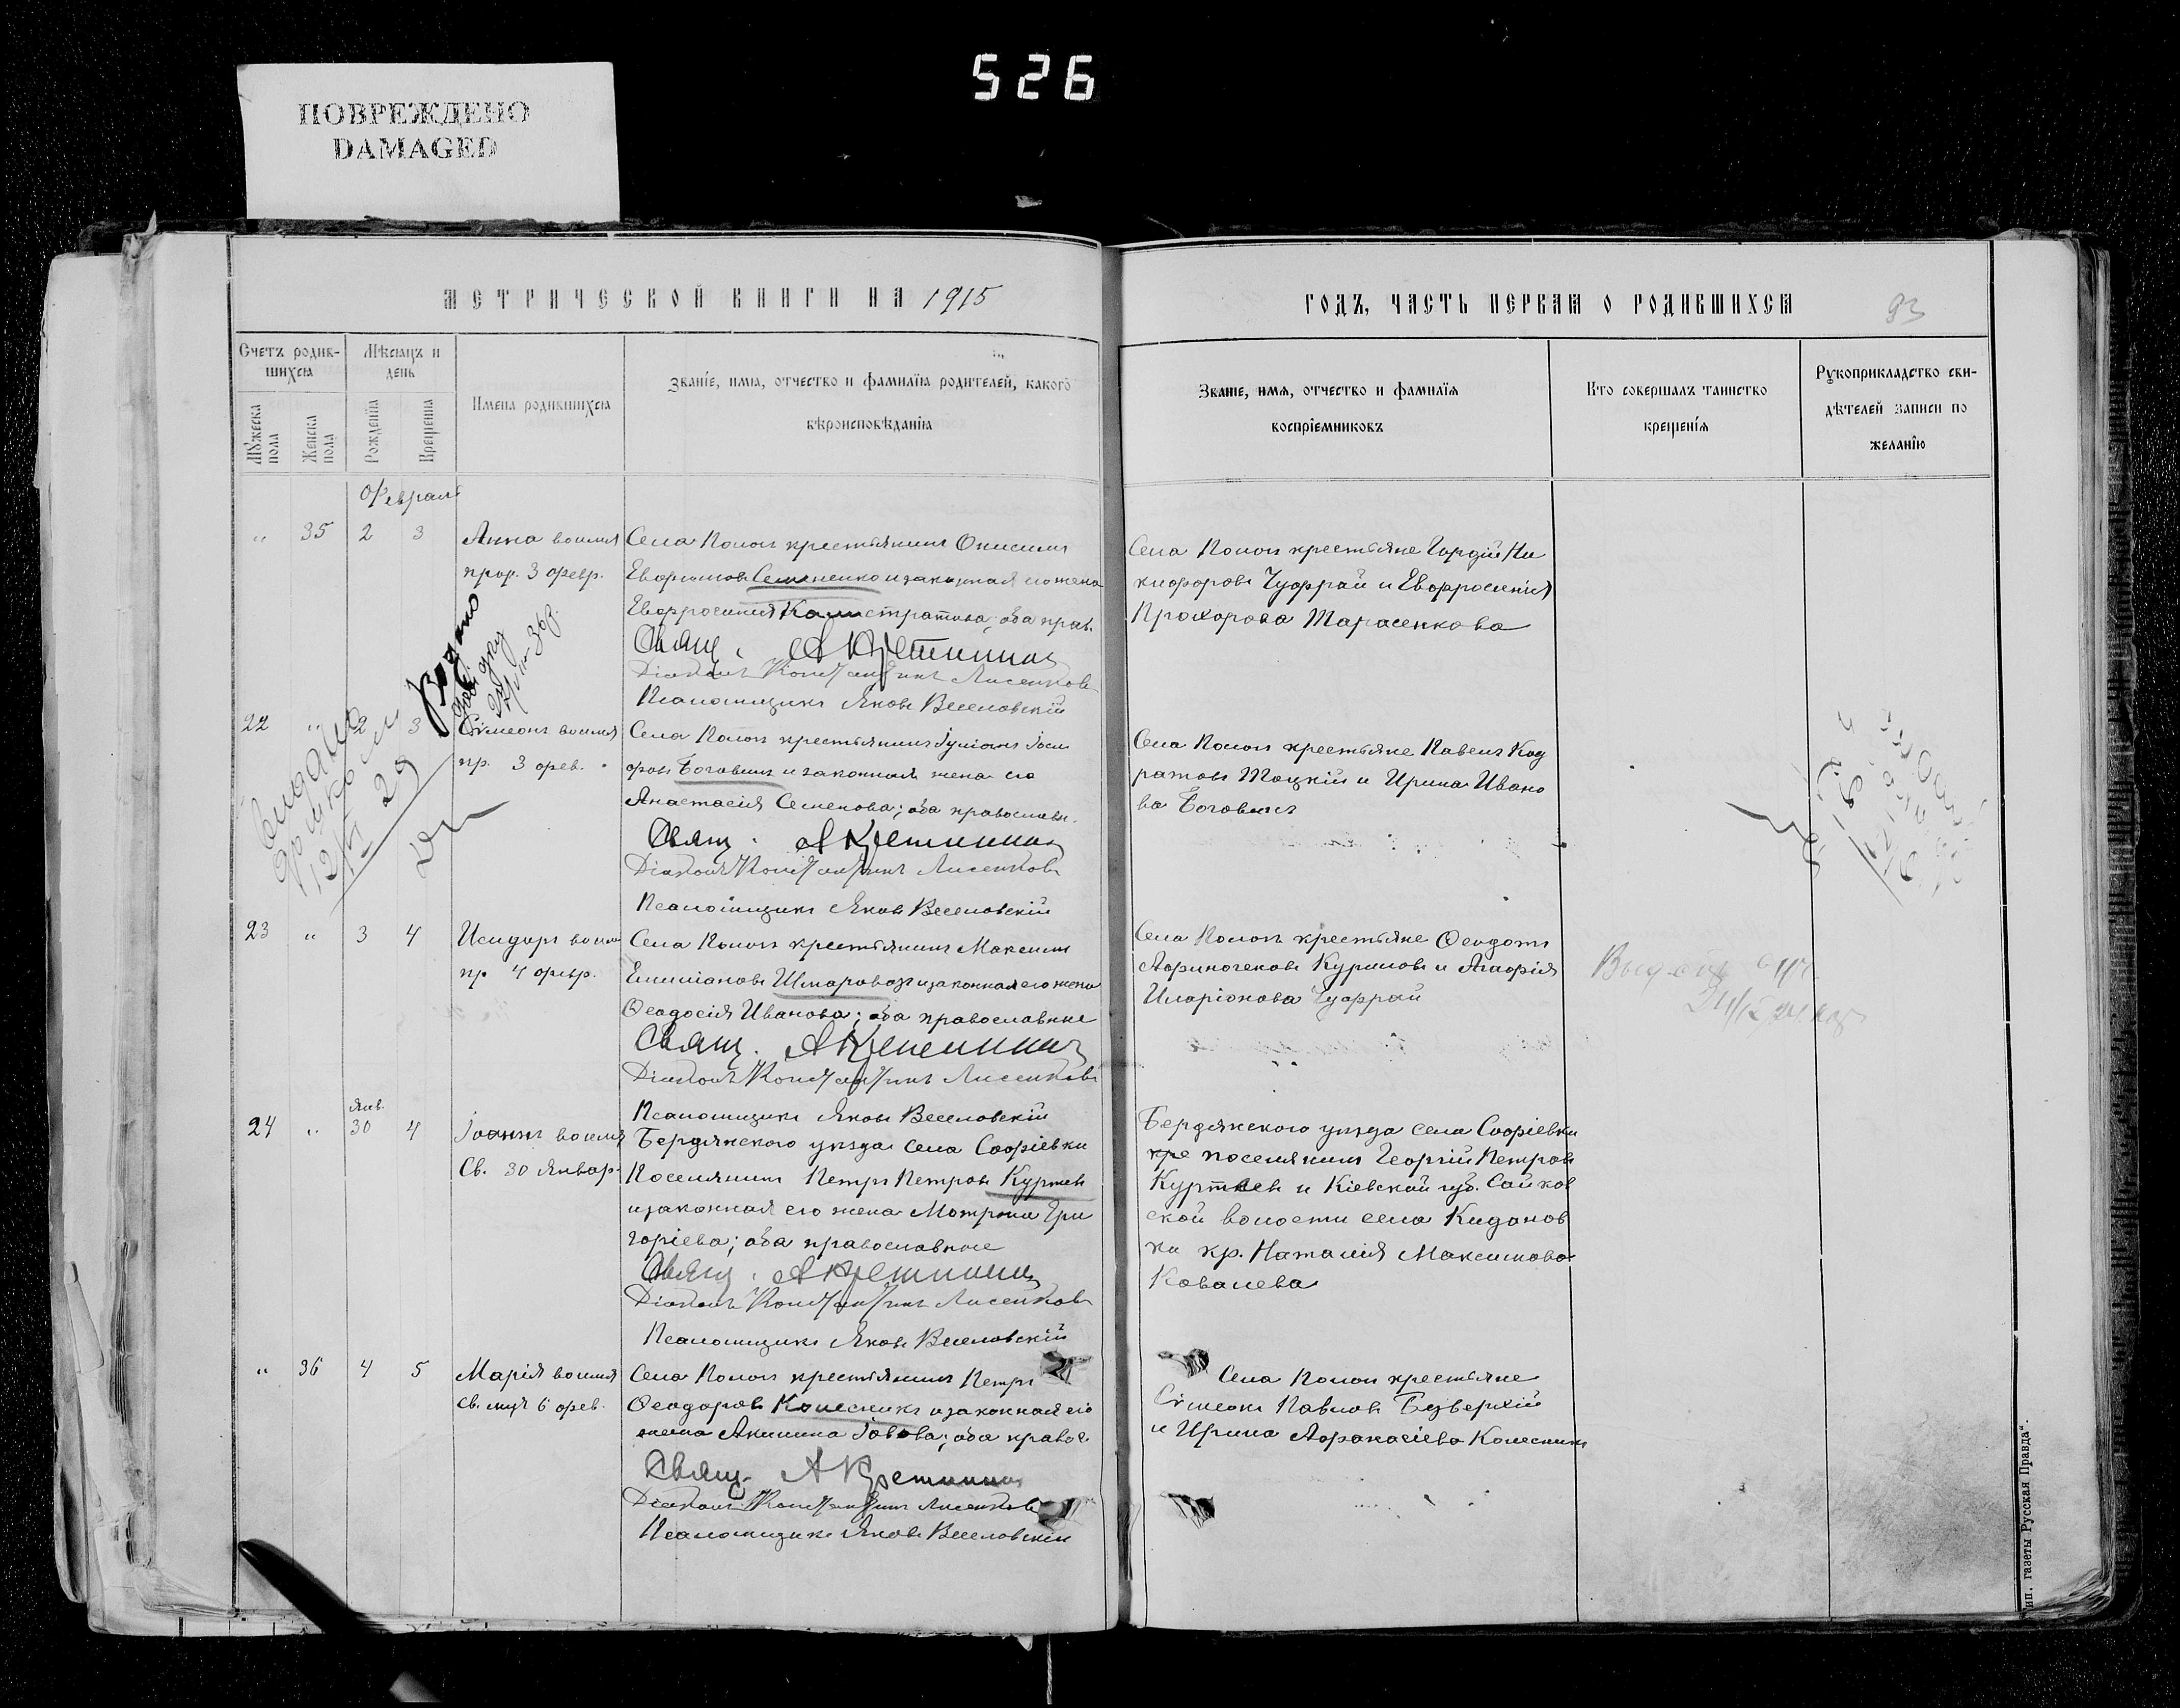 526
ПОВРЕЖДЕНО
DAMAGED
МЕТРИЧЕСКОЙ КНИГИ НА 1915
ГОДЪ, ЧАСТЬ ПЕРВАЯ О РОДИВШИХСЯ
93
Счетъ родив-
шихся
Мѣсяцъ и
день
Мужеска
пола
Женска
пола
Рожденія
Крещенія
Имена родившихся
Званіе, имя, отчество и фамилія родителей, какого
вѣроисповѣданія
Званіе, имя, отчество и фамилія
воспріемниковъ
Кто совершалъ таинство
крещенія
Рукоприкладство сви-
дѣтелей записи по
желанію
Февраль
" 35 2 3
Анна во имя
прор. 3 февр.
Села Пологъ крестьянинъ Онисимъ
Евфимовъ Семененко и законная его жена
Евфросинія Калистратова; оба прав.
Свящ. А Кретининъ
Діаконъ Константинъ Лисенковъ
Псаломщикъ Яковъ Веселовскій
Села Пологъ крестьяне Гордій Ни
кифоровъ Чуфрай и Евфросинія
Прохорова Тарасенкова
22 " 2 3
Сѵмеонъ во имя
пр. 3 фев.
Села Пологъ крестьянинъ Іуліанъ Іоси
фовъ Боговинъ и законная жена его
Анастасія Семенова; оба православн.
Свящ. А Кретининъ
Діаконъ Константинъ Лисенковъ
Псаломщикъ Яковъ Веселовскій
Села Пологъ крестьяне Павелъ Код
ратовъ Тоцкій и Ирина Ивано
ва Боговинъ
23 " 3 4
Исидоръ во имя
пр 4 февр.
Села Пологъ крестьянинъ Максимъ
Емиліановъ Шмаровозъ и законная его жена
Ѳеодосія Иванова; оба православные
Свящ. А Кретининъ
Діаконъ Константинъ Лисенковъ
Псаломщикъ Яковъ Веселовскій
Села Пологъ крестьяне Ѳеодотъ
Афиногеновъ Куриловъ и Агафія
Иларіонова Чуфрай
24 " Янв. 30 4
Іоаннъ во имя
Св. 30 Январ.
Бердянского уѣзда села Софіевки
Поселянинъ Петръ Петровъ Куртевъ
и законная его жена Мотрона Гри
горіева; оба православные
Свящ. А Кретининъ
Діаконъ Константинъ Лисенковъ
Псаломщикъ Яковъ Веселовскій
Бердянского уѣзда села Софіевки
кре поселянинъ Георгій Петровъ
Куртевъ и Кіевской губ.
ской волости села Кидановъ
ки кр. Наталія Максимова
Ковалева
" 36 4 5
Марія во имя
св. муч 6 фев.
Села Пологъ крестьянинъ Петръ
Ѳеодоровъ Колесникъ и законная его
жена Акилина Іовова; оба правос
Свящ. А Кретининъ
Діаконъ Константинъ Лисенковъ
Псаломщикъ Яковъ Веселовскій
Села Пологъ крестьяне
Сѵмеонъ Павловъ Безверхій
и Ирина Афанасіева Колесникъ
ип. газеты Русская Правда".